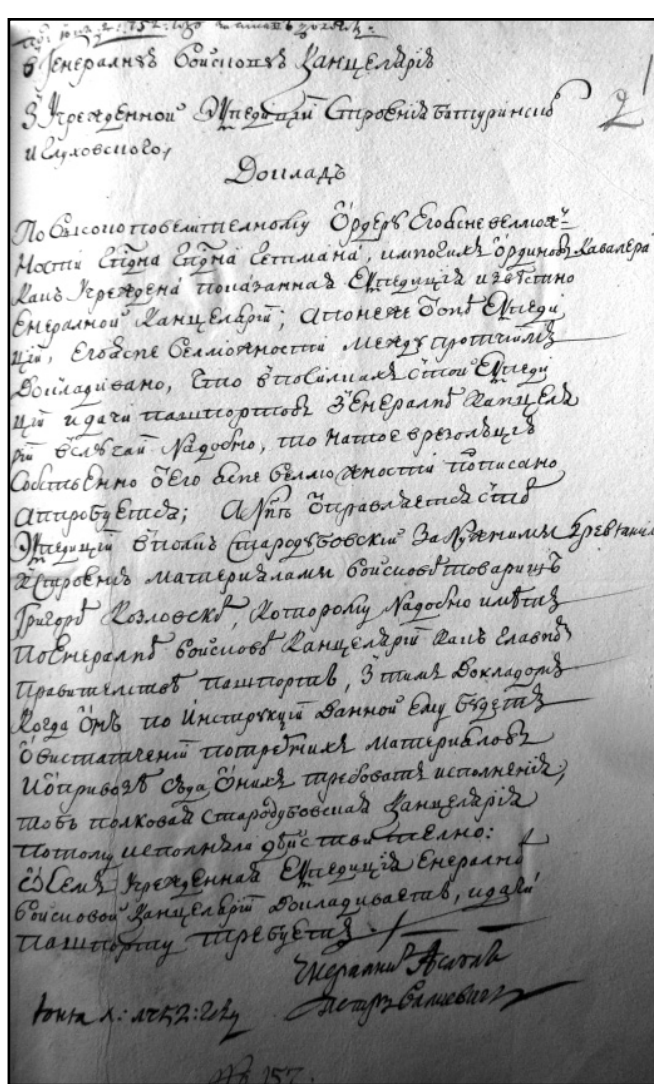 в Генералную Войсковую Канцелярію
З Учрежденной Экспедиціи Строенія Батуринского 2
и Глуховского,
Докладъ
По высокоповелителному Ордеру Его Ясневелмож-
ности Гетмана, и многихъ Ординовъ Кавалера
какъ Учреждена показанная Експедиція извѣстно
Енералной Канцеляріи; а понеже отъ оной Експеди
ціи, Его Ясне Велможности между протчимъ
Докладивано, что в посилкахъ с той Експеди
ціи и дачи пашпортовъ З Енералной Канцеля
ріи в случаи надобно, то на тое в резолюціи
Собственно Его Ясне Велможности подписано
аппробуется; а нынѣ отправляется с той
Экспедиціи в полкъ Стародубовскій За нужними
к Строенію материялами войсковой товаришъ
Григорій Козловскій, которому надобно имѣти
по Енералной Войсковой Канцеляріи какъ Главной
Правителствѣ пашпортъ, З тимъ Докладомъ
когда онъ по Инструкціи данной ему будетъ
О вистатченіи потребнихъ материаловъ
и о привозѣ сюда онихъ требовать исполненія,
тобъ полковая Стародубовская Канцелярія
потому исполняла дѣйствително:
О семъ Учрежденная Експедиція Енералной
Войсковой Канцеляріи Докладиваетъ, и дачи
пашпорту требуетъ.
Енералний Асаулъ
Петръ Валкевичъ
Юня 1752: году
№ 157.